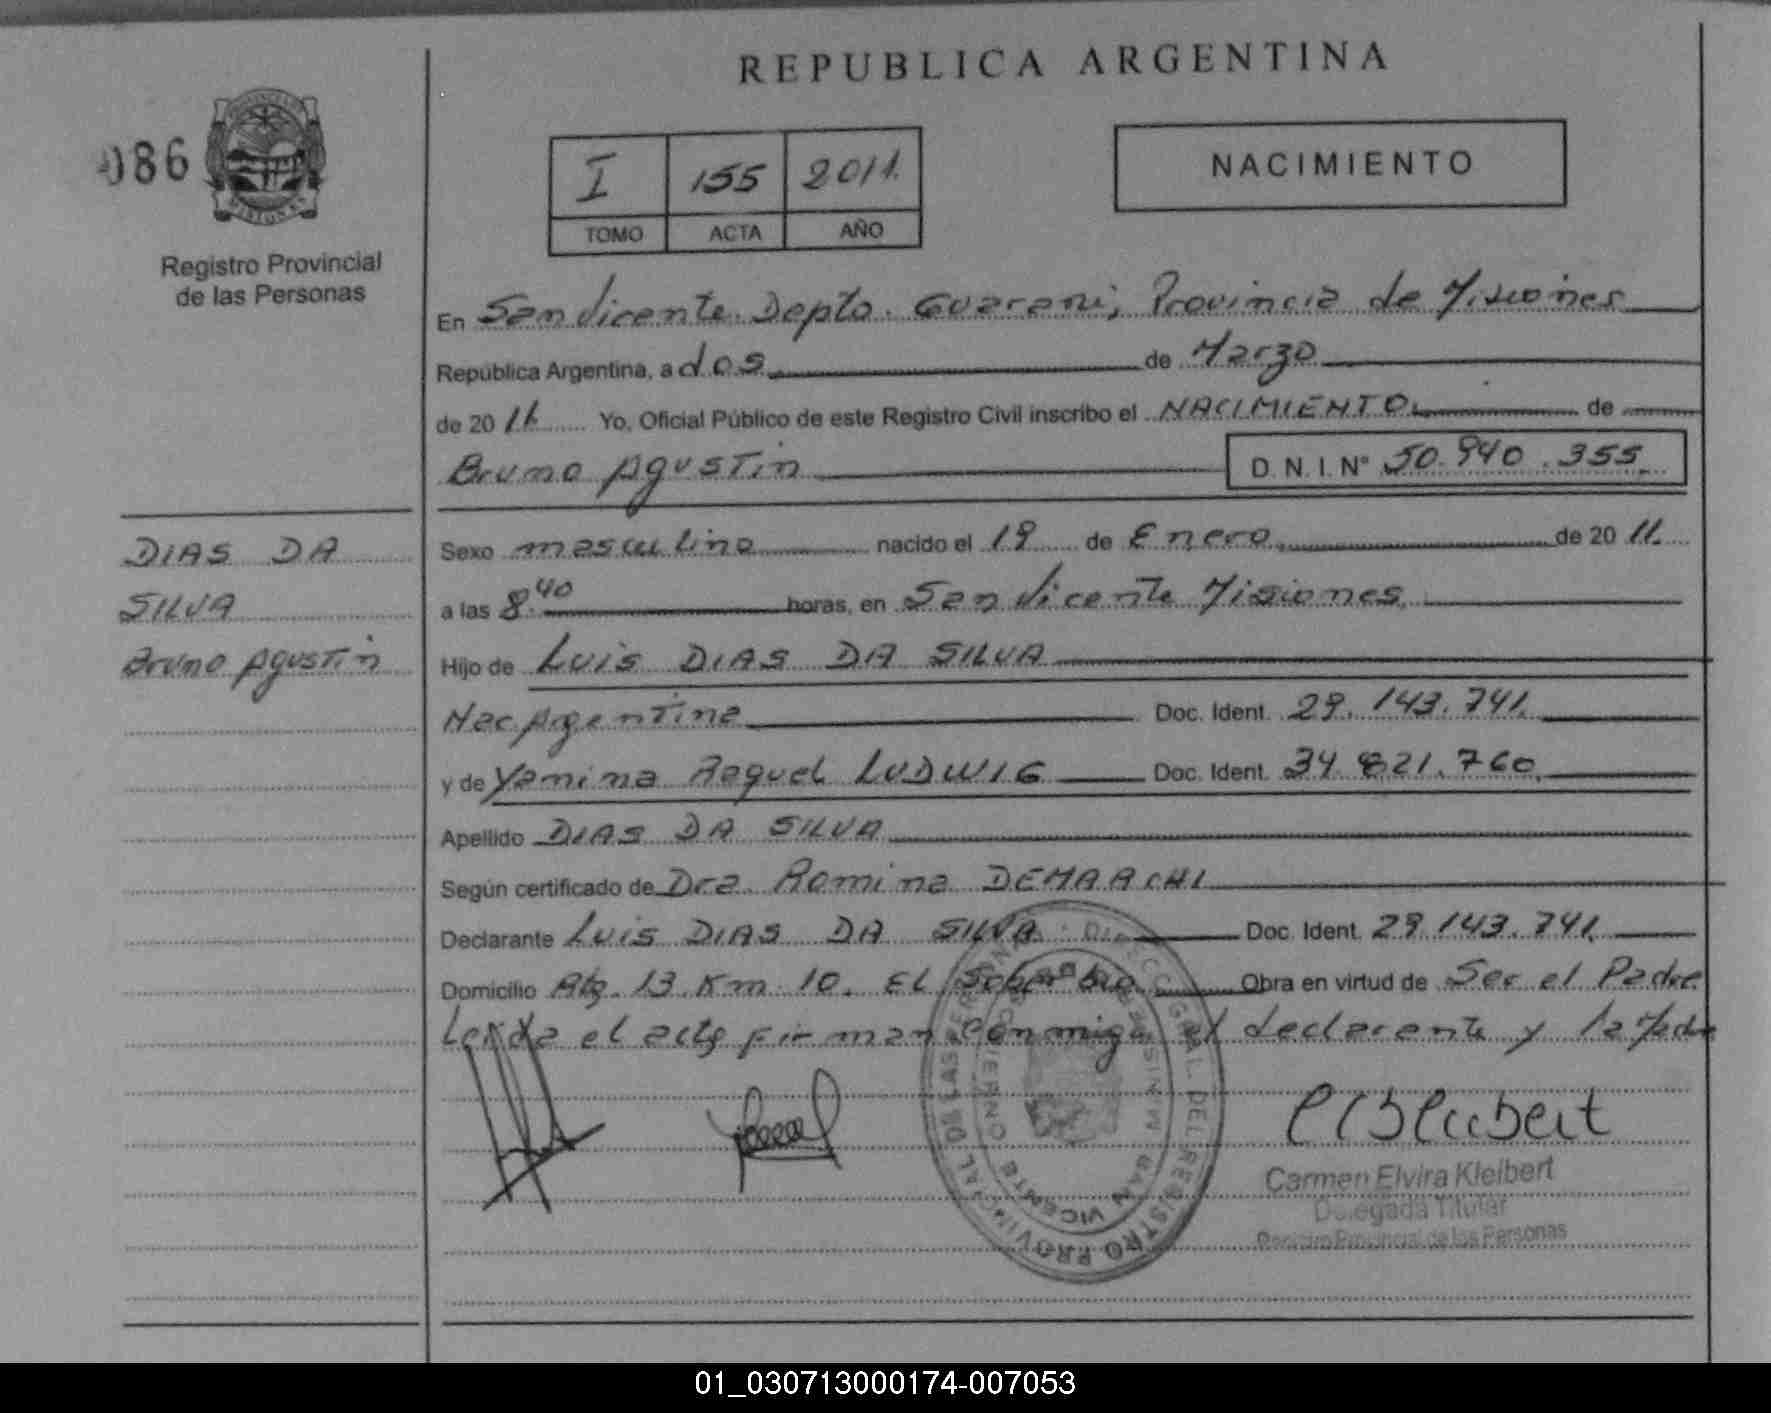 REPUBLICA ARGENTINA
086
I 155 2011.
TOMO ACTA AÑO
NACIMIENTO
Registro Provincial
de las Personas
En San Vicente. Depto. Guarani, Provincia de Misiones
República Argentina, a dos de Marzo
de 2011. Yo, Oficial Público de este Registro Civil inscribo el NACIMIENTO. de
Bruno Agustin D. N. I. Nº 50.940.355.
DIAS DA
SILVA
Bruno Agustin
Sexo masculino nacido el 19 de Enero. de 2011.
a las 8.40 horas, en San Vicente Misiones.
Hijo de Luis DIAS DA SILVA
Nac. Argentina Doc. Ident. 29.143.741.
y de Yamina Raquel LUDWIG Doc. Ident. 34.821.760.
Apellido DIAS DA SILVA
Según certificado de Dra. Romina DEMARCHI
Declarante Luis DIAS DA SILVA. Doc. Ident. 29.143.741.
Domicilio Km. 10. EL Soberbio. Obra en virtud de Ser el Padre.
Leida el acta firman conmigo el declarante y la Madre
Carmen Elvira Kleibert
Delegada Titular
Registro Provincial de las Personas
DIRECC. GRAL. DEL REGISTRO PROVINCIAL DE LAS PERSONAS
SAN VICENTE
01_030713000174-007053